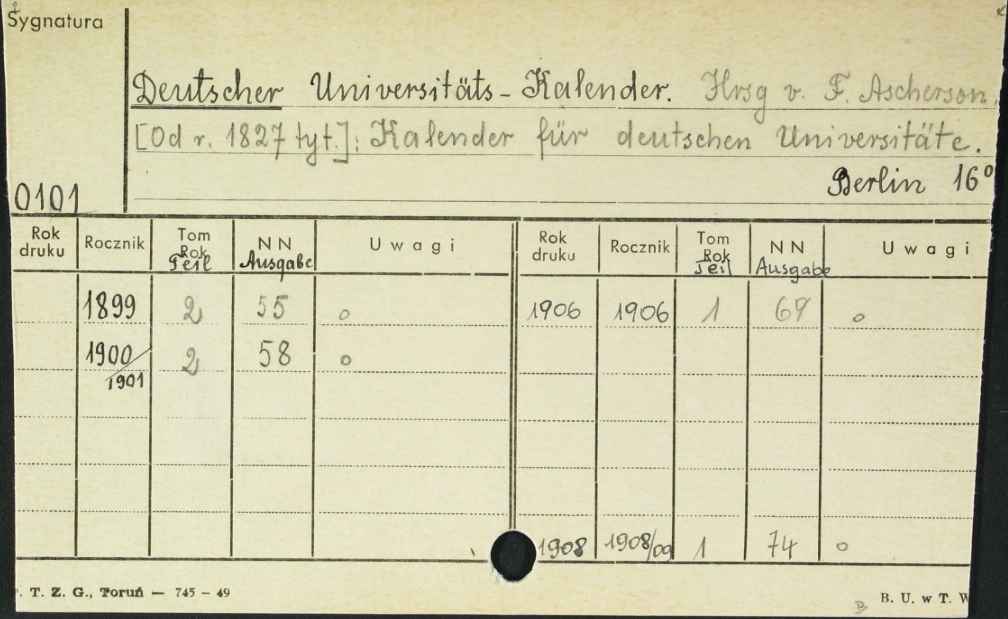 Sygnatura
Deutscher Universitäts-Kalender. Hrsg v. F. Ascherson
[Od r. 1827 tyt.]: Kalender für deutschen Universitäte.
Berlin 16°
0101
Rok druku Rocznik Tom Rok Teil NN Ausgabe Uwagi Rok druku Rocznik Tom Rok Teil NN Ausgabe Uwagi
1899 2 55 o 1906 1906 1 69 o
1900/1901 2 58 o
1908 1908/09 1 74 o
. T. Z. G., Toruń — 745 – 49
B. U. w T. W